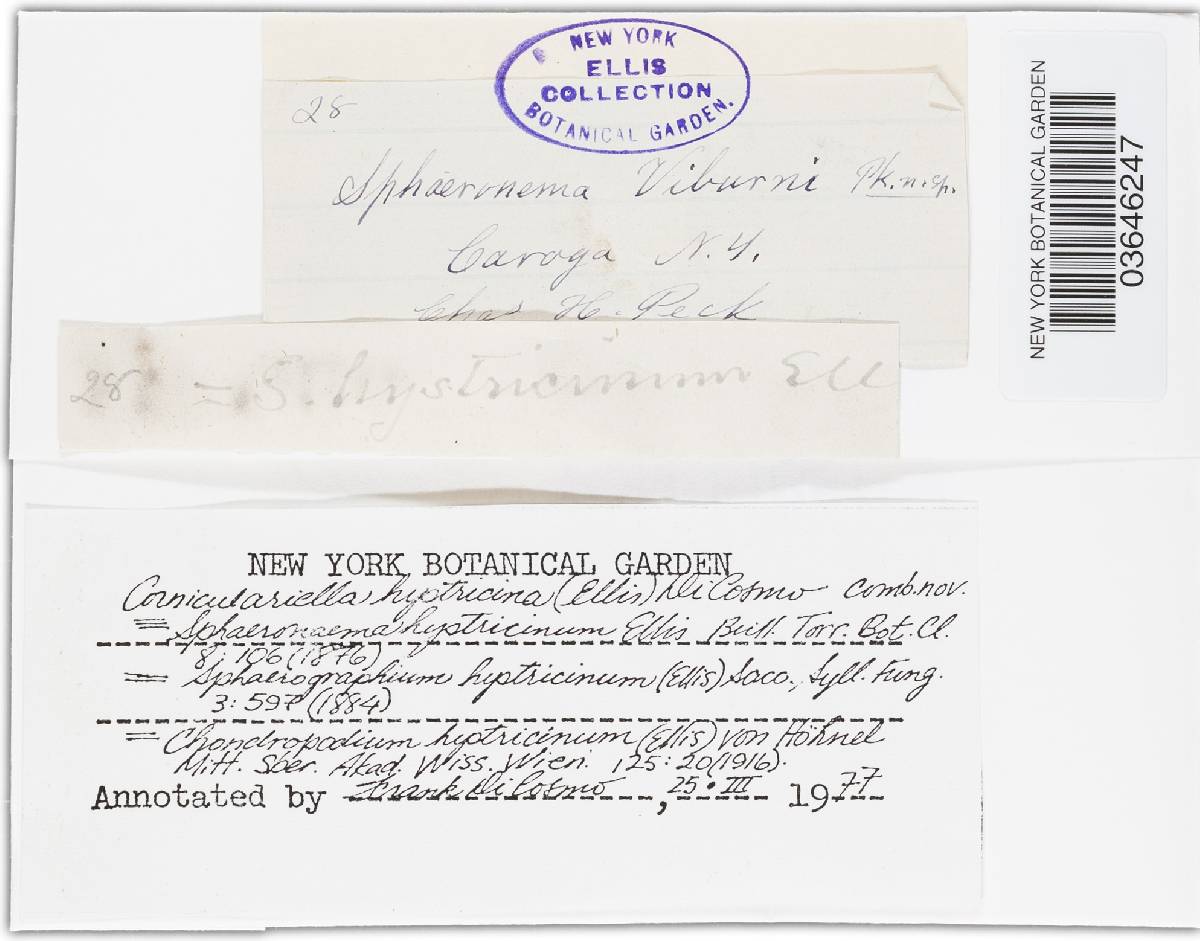 NEW YORK
ELLIS
COLLECTION
BOTANICAL GARDEN.
28
Sphaeronema Viburni Pk. n. sp.
Caroga N. Y.
Chas H. Peck
28 = S. hystricinum Ell
NEW YORK BOTANICAL GARDEN
03646247
NEW YORK BOTANICAL GARDEN
Corniculariella hystricina (Ellis) DiCosmo comb. nov.
= Sphaeronaema hystricinum Ellis Bull. Torr. Bot. Cl.
8: 106 (1876)
= Sphaerographium hystricinum (Ellis) Sacc., Syll. Fung.
3: 597 (1884)
= Chondropodium hystricinum (Ellis) von Höhnel
Mitt. Sber. Akad. Wiss. Wien. 125: 20 (1916).
Annotated by Frank DiCosmo, 25 • III 1977